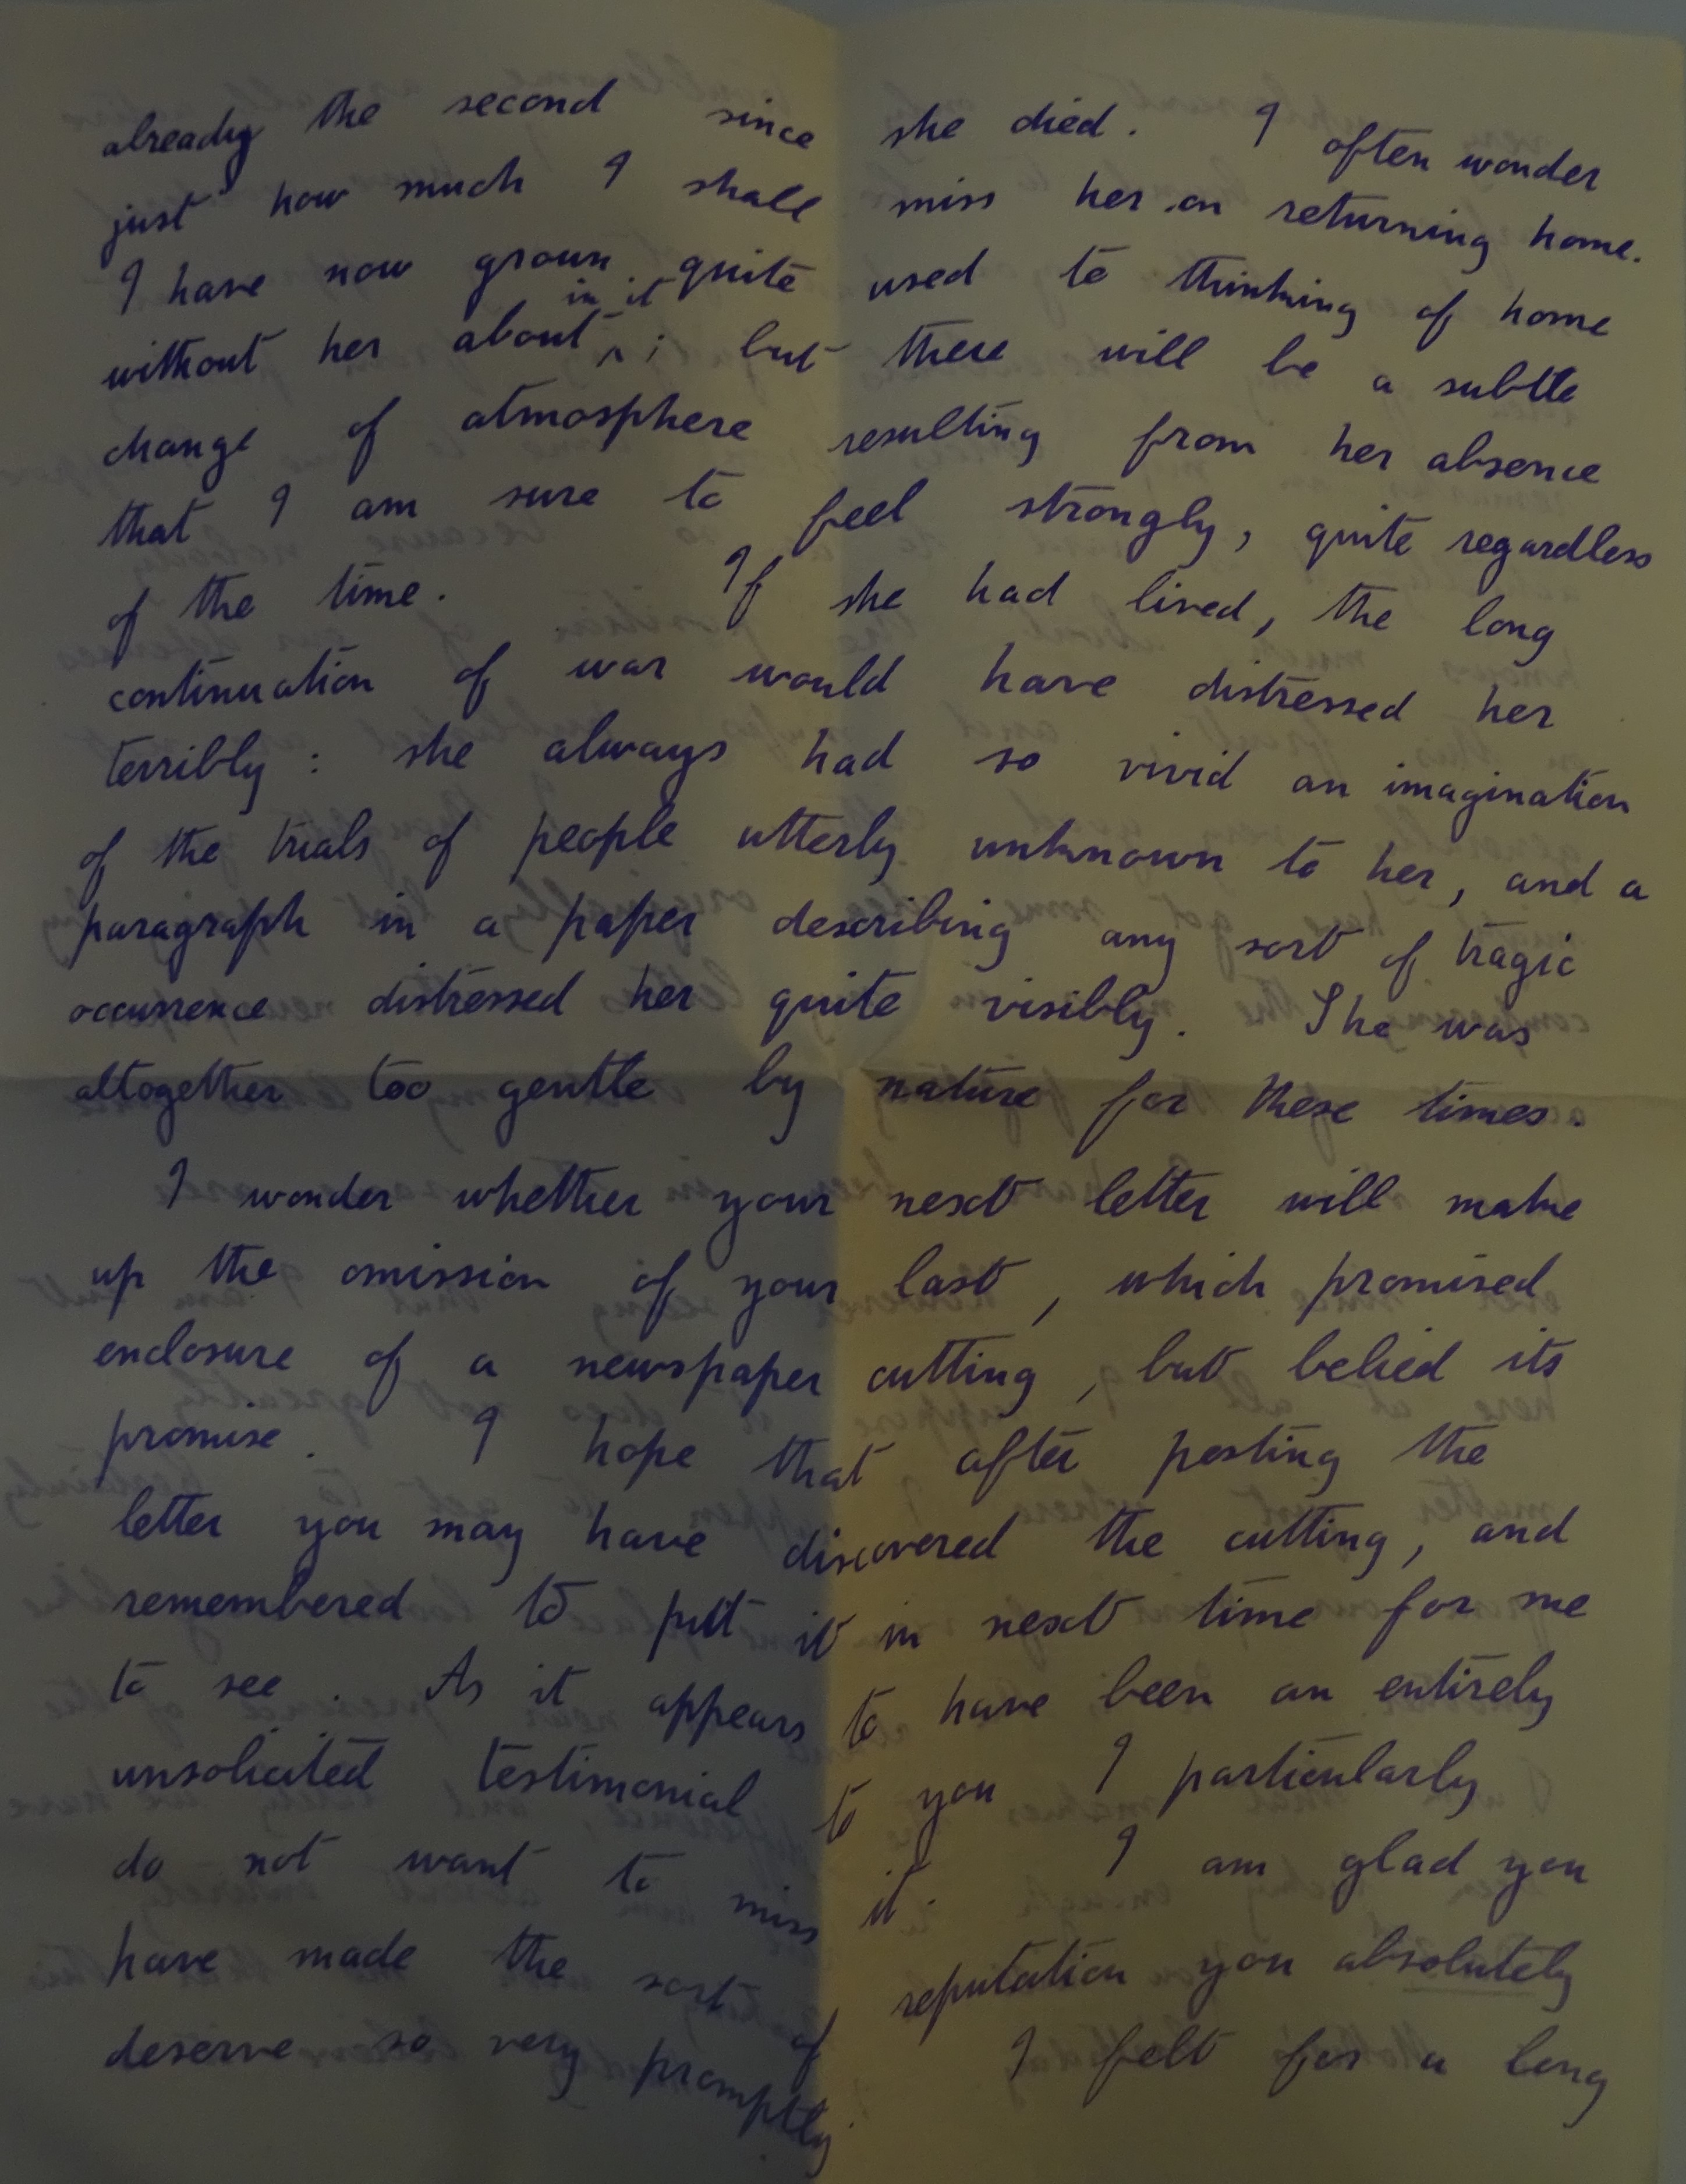 already the second since she died. I often wonder
just how much I shall miss her on returning home.
I have now grown quite used to thinking of home
without her about in it ; but there will be a subtle
change of atmosphere resulting from her absence
that I am sure to feel strongly, quite regardless
of the time. If she had lived, the long
continuation of war would have distressed her
terribly : she always had so vivid an imagination
of the trials of people utterly unknown to her, and a
paragraph in a paper describing any sort of tragic
occurrence distressed her quite visibly. She was
altogether too gentle by nature for these times.
I wonder whether your next letter will make
up the omission of your last, which promised
enclosure of a newspaper cutting, but belied its
promise. I hope that after posting the
letter you may have discovered the cutting, and
remembered to put it in next time for me
to see. As it appears to have been an entirely
unsolicited testimonial to you I particularly
do not want to miss it. I am glad you
have made the sort of reputation you absolutely
deserve so very promptly. I felt for a long